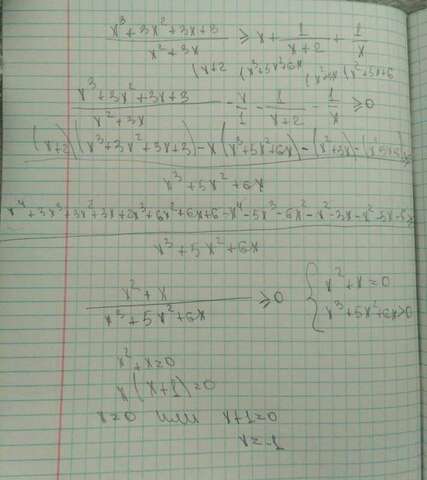 x³+3x²+3x+3 / x²+3x ≥ x + 1/(x+2) + 1/x
(x+2 (x³+5x²+6x (x²+3x (x²+5x+6
x³+3x²+3x+3 / x²+3x - x/1 - 1/(x+2) - 1/x ≥ 0
(x+2)(x³+3x²+3x+3)-x(x³+5x²+6x)-(x²+3x)-(x²+5x+6) ≥0
x³+5x²+6x
x⁴+3x³+3x²+3x+2x³+6x²+6x+6-x⁴-5x³-6x²-x²-3x-x²-5x-6≥
x³+5x²+6x
x²+x / x³+5x²+6x ≥0 { x²+x=0
x³+5x²+6x>0
x²+x=0
x(x+1)=0
x=0 или x+1=0
x=-1